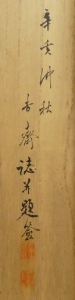 辛亥冲秋
香齋誌并題簽